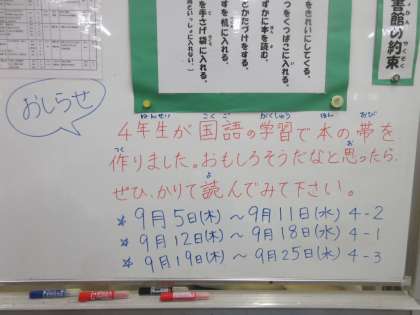 書館の約束
をきれいにしてくる。
つをくつばこに入れる。
ずかに本を読む。
とかたづけをする。
すを机に入れる。
を手さげ袋に入れる。
といっしょに入れない。)
おしらせ
4年生が国語の学習で本の帯を
作りました。おもしろそうだなと思ったら、
ぜひ、かりて読んでみて下さい。
★ 9月5日(木) ～ 9月11日(水) 4-2
★ 9月12日(木) ～ 9月18日(水) 4-1
★ 9月19日(木) ～ 9月25日(水) 4-3